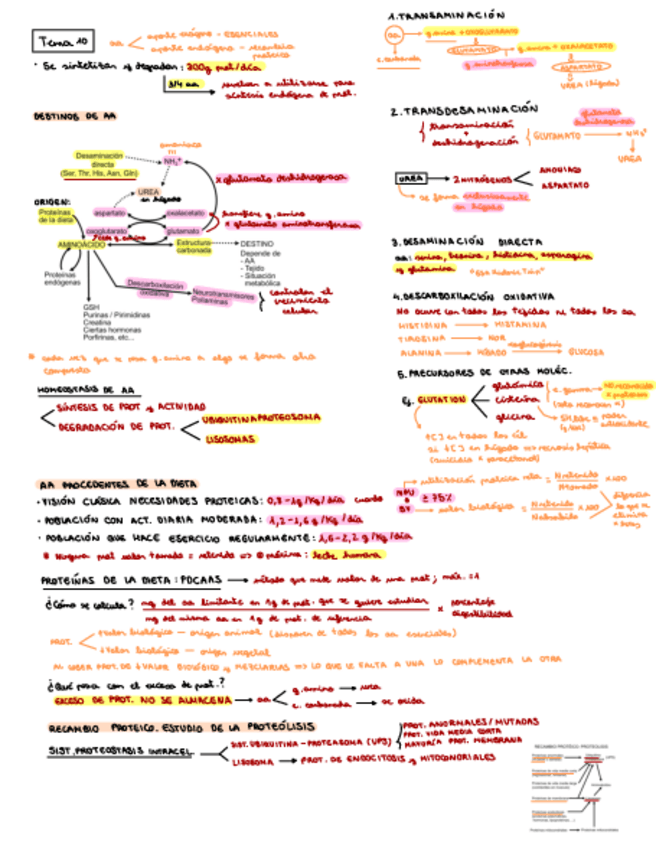 Tema 10
aa
aporte exógeno - ESENCIALES
aporte endógeno - recambio proteico
· Se sintetizan y degradan: 300g prot/día
3/4 aa → vuelven a utilizarse para
síntesis endógena de prot.
DESTINOS DE AA
amoniaco
Desaminación
directa
(Ser, Thr, His, Asn, Gln)
NH₄⁺
UREA
en hígado
x glutamato deshidrogenasa
ORIGEN:
Proteínas
de la dieta
aspartato
oxalacetato
oxoglutarato
glutamato
transfiere g. amino
x glutamato aminotransferasa
AMINOÁCIDO
Estructura
carbonada
DESTINO
Depende de
- AA
- Tejido
- Situación
metabólica
Proteínas
endógenas
Descarboxilación
oxidativa
Neurotransmisores
Poliaminas
controlan el
crecimiento
celular
GSH
Purinas / Pirimidinas
Creatina
Ciertas hormonas
Porfirinas, etc...
cada vez que se une g. amino a algo se forma otro
compuesto
HOMEOSTASIS DE AA
SÍNTESIS DE PROT y ACTIVIDAD
DEGRADACIÓN DE PROT.
UBIQUITINA PROTEOSOMA
LISOSOMAS
AA PROCEDENTES DE LA DIETA
· VISIÓN CLÁSICA NECESIDADES PROTEICAS: 0,8-1g/Kg/día cuando
NPU
o
BV
≥ 75%
· POBLACIÓN CON ACT. DIARIA MODERADA: 1,2-1,6 g/Kg/día
· POBLACIÓN QUE HACE EJERCICIO REGULARMENTE: 1,6-2,2 g/Kg/día
Ninguna prot valor tomado = retenido => máxima: leche humana
PROTEÍNAS DE LA DIETA: PDCAAS → método que mide valor de una prot; máx. = 1
¿Cómo se calcula? mg del aa limitante en 1g de prot. que se quiere estudiar
mg del mismo aa en 1g de prot. de referencia
x porcentaje
digestibilidad
PROT.
↑valor biológico - origen animal (disponen de todos los aa esenciales)
↓valor biológico - origen vegetal
PROT. DE ↓VALOR BIOLÓGICO y MEZCLARLAS => LO QUE LE FALTA A UNA LO COMPLEMENTA LA OTRA
¿Qué pasa con el exceso de prot.?
EXCESO DE PROT. NO SE ALMACENA → aa
g. amino → urea
c. carbonada → se oxida
RECAMBIO PROTEICO. ESTUDIO DE LA PROTEÓLISIS
SIST. PROTEOSTASIS INTRACEL
SIST. UBIQUITINA - PROTEASOMA (UPS)
PROT. ANORMALES / MUTADAS
PROT. VIDA MEDIA CORTA
MAYORÍA PROT. MEMBRANA
LISOSOMA → PROT. DE ENDOCITOSIS y MITOCONDRIALES
1. TRANSAMINACIÓN
aa
g. amino + OXOGLUTARATO
GLUTAMATO
g. amino + OXALACETATO
c. carbonada
g. aminotransferasa
ASPARTATO
UREA (hígado)
2. TRANSDESAMINACIÓN
transaminación
+
deshidrogenación
GLUTAMATO
glutamato
deshidrogenasa
NH₄⁺
UREA
UREA → 2 NITRÓGENOS
AMONIACO
ASPARTATO
se forma exclusivamente
en hígado
3. DESAMINACIÓN DIRECTA
aa: serina, treonina, histidina, asparagina
y glutamina
4. DESCARBOXILACIÓN OXIDATIVA
No ocurre con todos los tejidos ni todos los aa
HISTIDINA → HISTAMINA
TIROSINA → NOR
ALANINA → HÍGADO → GLUCOSA
gluconeogénesis
5. PRECURSORES DE OTRAS MOLÉC.
Ej. GLUTATION
glutámico
cisteína
glicina
NO reconocido
x proteasas
SH
poder
antioxidante
↑[ ] en todas las cél.
si ↓[ ] en hígado => necrosis hepática
(suicidios x paracetamol)
utilización proteica neta = N retenido
N ingerido
x100
valor biológico = N retenido
N absorbido
x100
diferencia
lo que se
elimina
x heces
RECAMBIO PROTEICO: PROTEÓLISIS